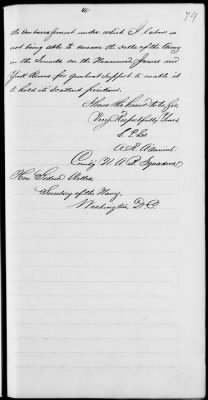 74
the embarrassment under which I labor in
not being able to answer the calls of the Army
in the Sounds on the Nansemond James and
York Rivers for gunboat support to enable it
to hold its scattered positions.
I have the honor to be, Sir,
Very Respectfully Yours
S. P. Lee
A. R. Admiral
Comdg N. A. B. Squadron
Hon Gideon Welles
Secretary of the Navy
Washington D.C.